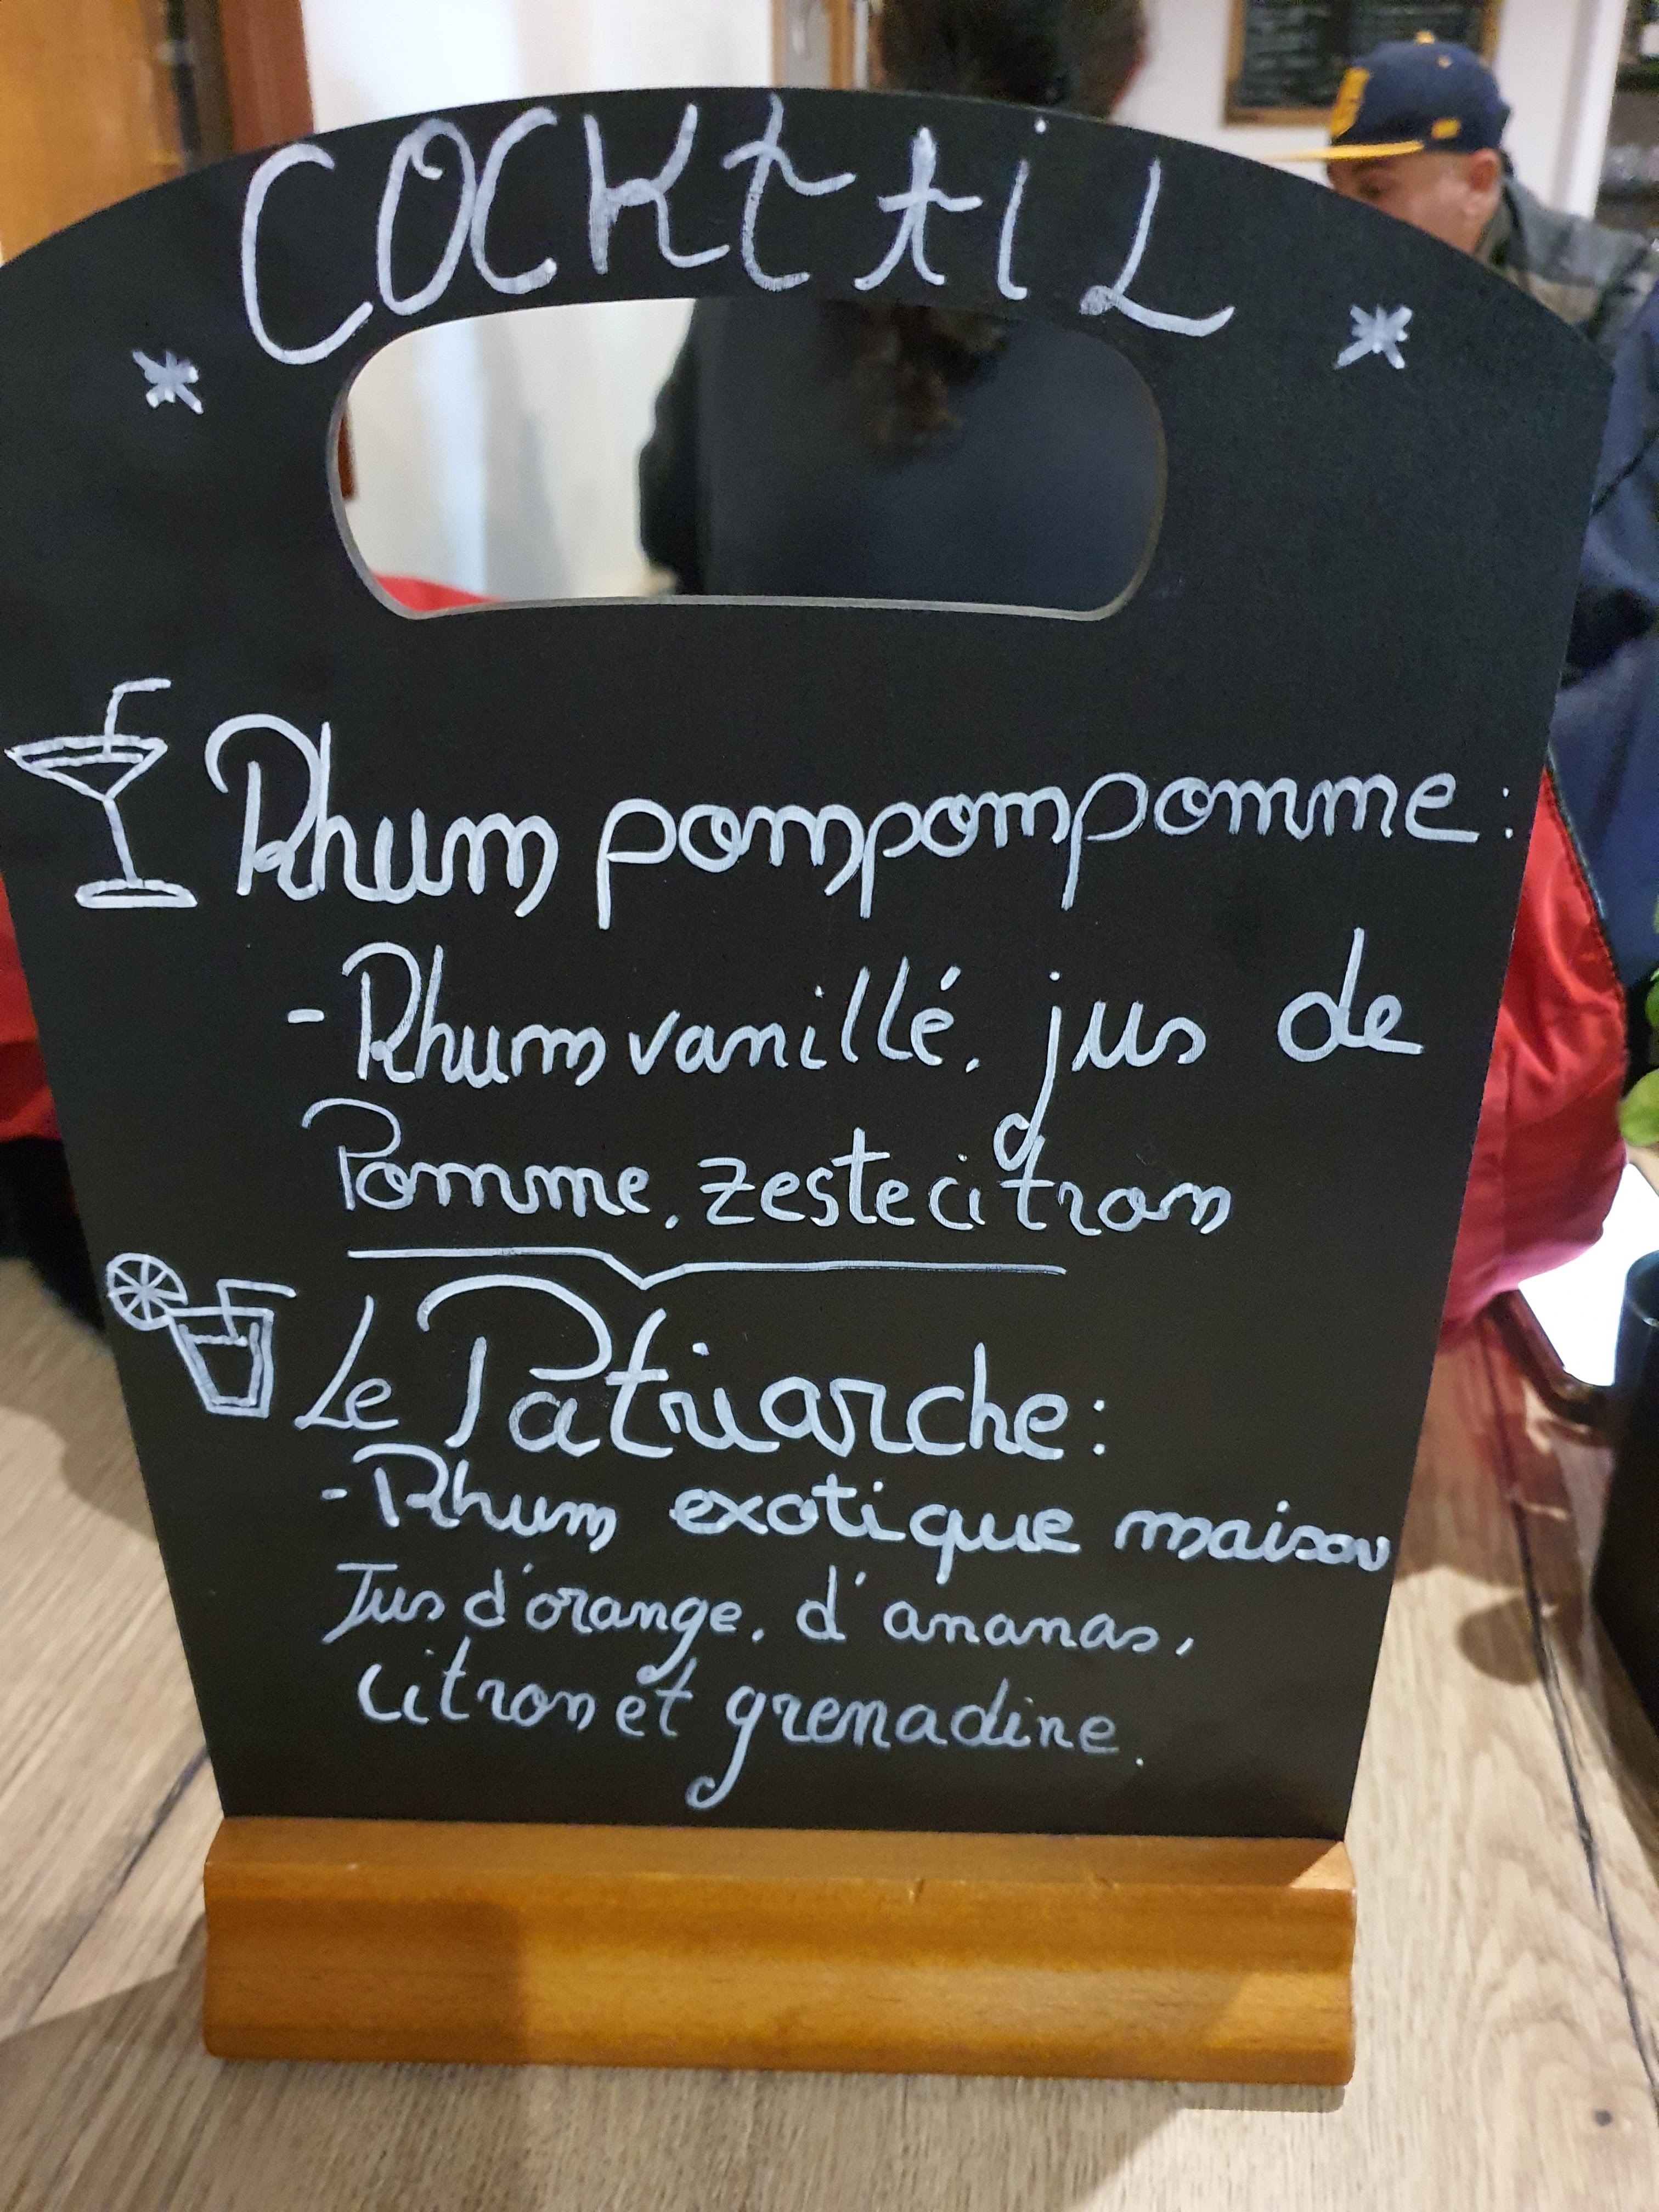 COCKtAiL
Rhum pompompomme :
- Rhum vanillé, jus de
Pomme, zeste citron
Le Patriarche :
- Rhum exotique maison
Jus d'orange, d'ananas,
citron et grenadine.